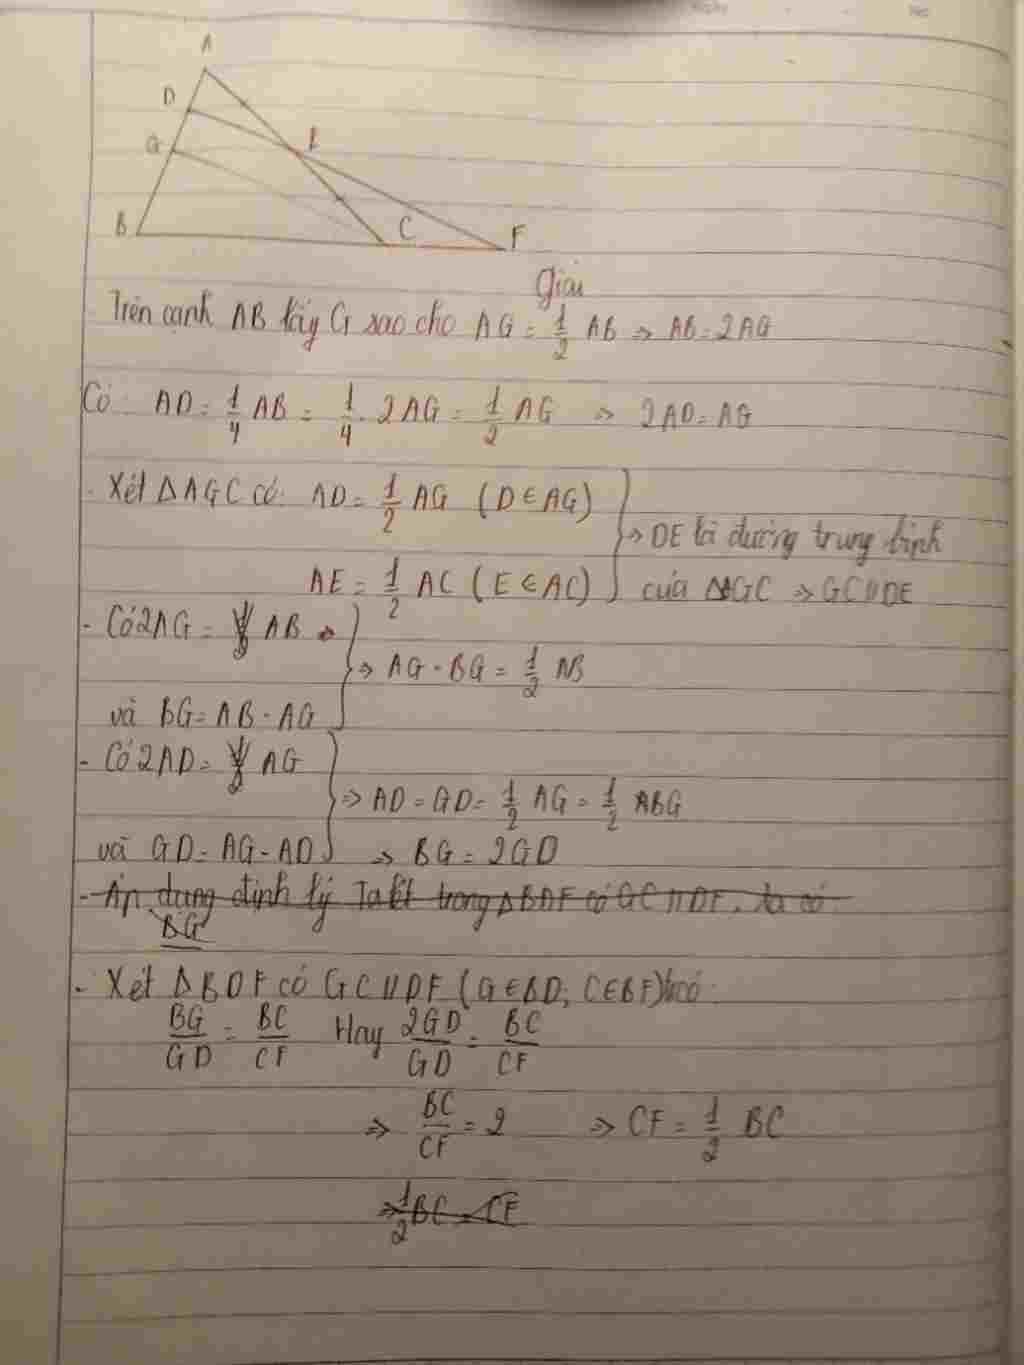 A
D
E
G
B
C
F
Giải
Trên cạnh AB lấy G sao cho AG = 1/2 AB => AB = 2AG
Có: AD = 1/4 AB = 1/4 . 2AG = 1/2 AG => 2AD = AG
- Xét ΔAGC có: AD = 1/2 AG (D ∈ AG)
=> DE là đường trung bình
AE = 1/2 AC (E ∈ AC) của ΔAGC => GC // DE
- Có 2AG = AB
=> AG = BG = 1/2 AB
và BG = AB - AG
- Có 2AD = AG
=> AD = GD = 1/2 AG = 1/2 BG
và GD = AG - AD => BG = 2GD
- Áp dụng định lý Talét trong ΔBDF có GC // DF, ta có
BG
- Xét ΔBDF có GC // DF (G ∈ BD; C ∈ BF) có:
BG/GD = BC/CF Hay 2GD/GD = BC/CF
=> BC/CF = 2 => CF = 1/2 BC
=> 1/2 BC = CF